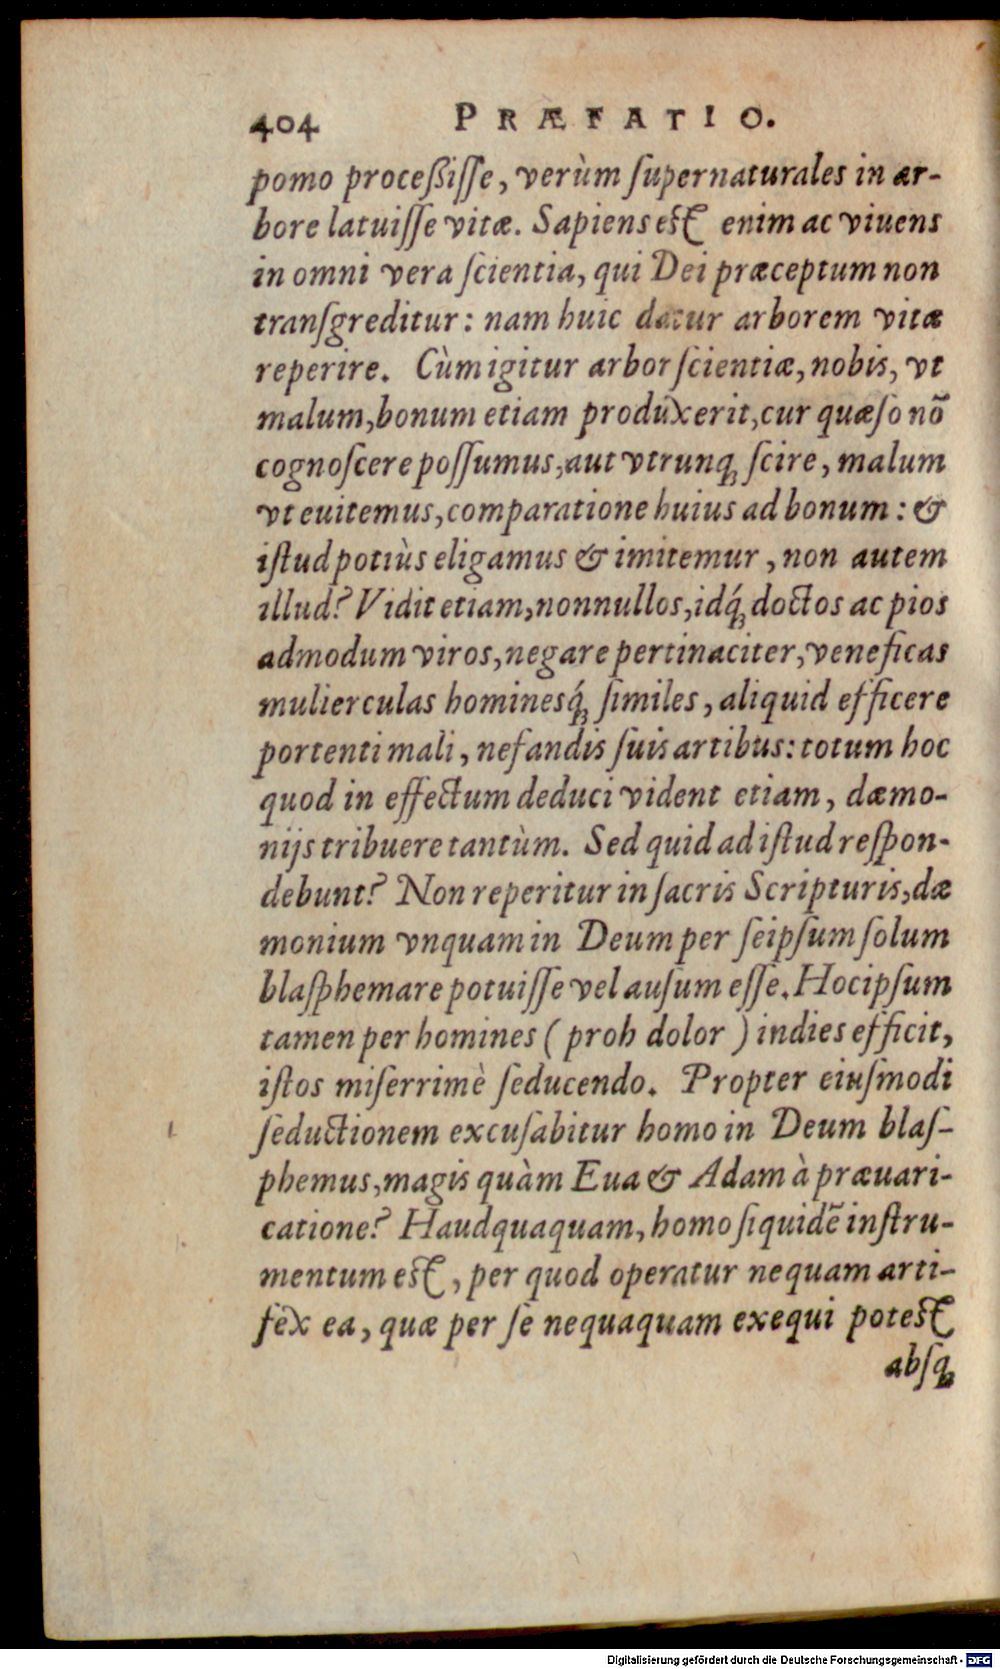 404 PRÆFATIO.
pomo proceßiſſe, verùm ſupernaturales in ar-
bore latuiſſe vitæ. Sapiens eſt enim ac viuens
in omni vera ſcientia, qui Dei præceptum non
tranſgreditur: nam huic datur arborem vitæ
reperire. Cùm igitur arbor ſcientiæ, nobis, vt
malum, bonum etiam produxerit, cur quæſo nõ
cognoſcere poſſumus, aut vtrunq; ſcire, malum
vt euitemus, comparatione huius ad bonum: &
iſtud potiùs eligamus & imitemur, non autem
illud? Vidit etiam, nonnullos, idq́; doctos ac pios
admodum viros, negare pertinaciter, veneficas
mulierculas hominesq́; ſimiles, aliquid efficere
portenti mali, nefandis ſuis artibus: totum hoc
quod in effectum deduci vident etiam, dæmo-
nijs tribuere tantùm. Sed quid ad iſtud reſpon-
debunt? Non reperitur in ſacris Scripturis, dæ
monium vnquam in Deum per ſeipſum ſolum
blaſphemare potuiſſe vel auſum eſſe. Hoc ipſum
tamen per homines (proh dolor) indies efficit,
iſtos miſerrimè ſeducendo. Propter eiuſmodi
ſeductionem excuſabitur homo in Deum blaſ-
phemus, magis quàm Eua & Adam à præuari-
catione? Haudquaquam, homo ſiquidẽ inſtru-
mentum eſt, per quod operatur nequam arti-
fex ea, quæ per ſe nequaquam exequi poteſt
abſq;
Digitalisierung gefördert durch die Deutsche Forschungsgemeinschaft - DFG